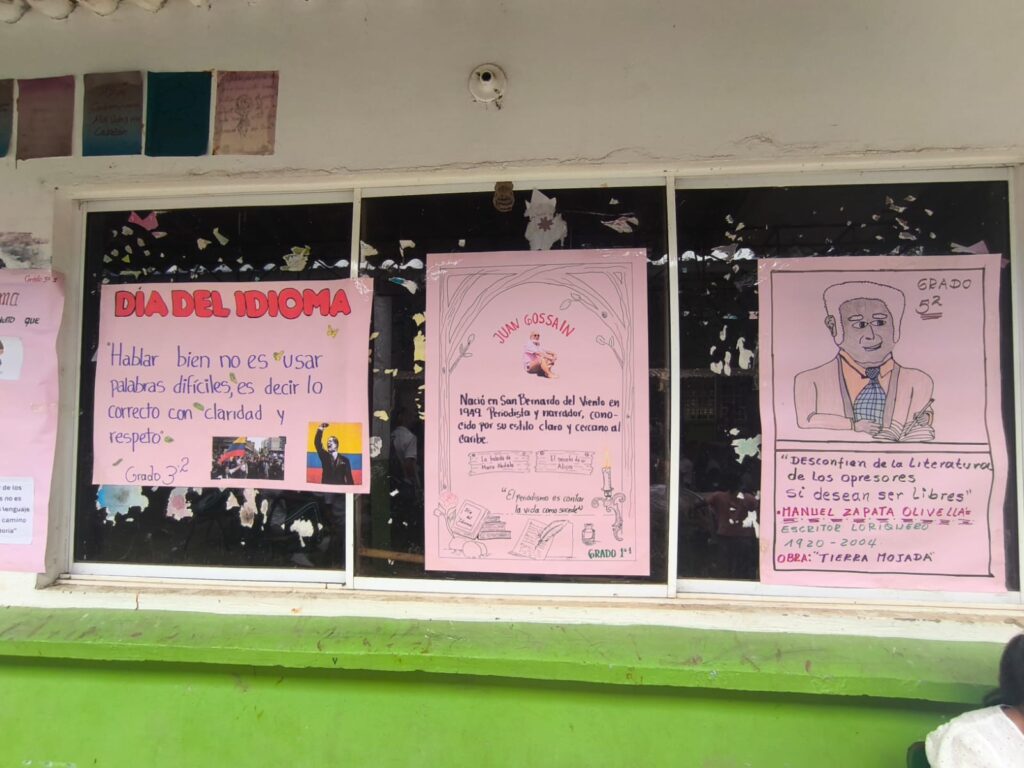 Grado 5º
DÍA DEL IDIOMA
"Hablar bien no es usar
palabras difíciles, es decir lo
correcto con claridad y
respeto"
Grado 3º2
JUAN GOSSAIN
Nació en San Bernardo del Viento en
1949. Periodista y narrador, cono-
cido por su estilo claro y cercano al
caribe.
La balada de
María Abdala
El secreto de
Alicia
"El periodismo es contar
la vida como sucede"
Día
del
idioma
GRADO 1º1
GRADO
5º2
"DESCONFIEN DE LA LITERATURA
DE LOS OPRESORES
SI DESEAN SER LIBRES"
MANUEL ZAPATA OLIVELLA
ESCRITOR LORIQUERO
1920-2004
OBRA: "TIERRA MOJADA"
QUE
de los
no es
lenguaje
camino